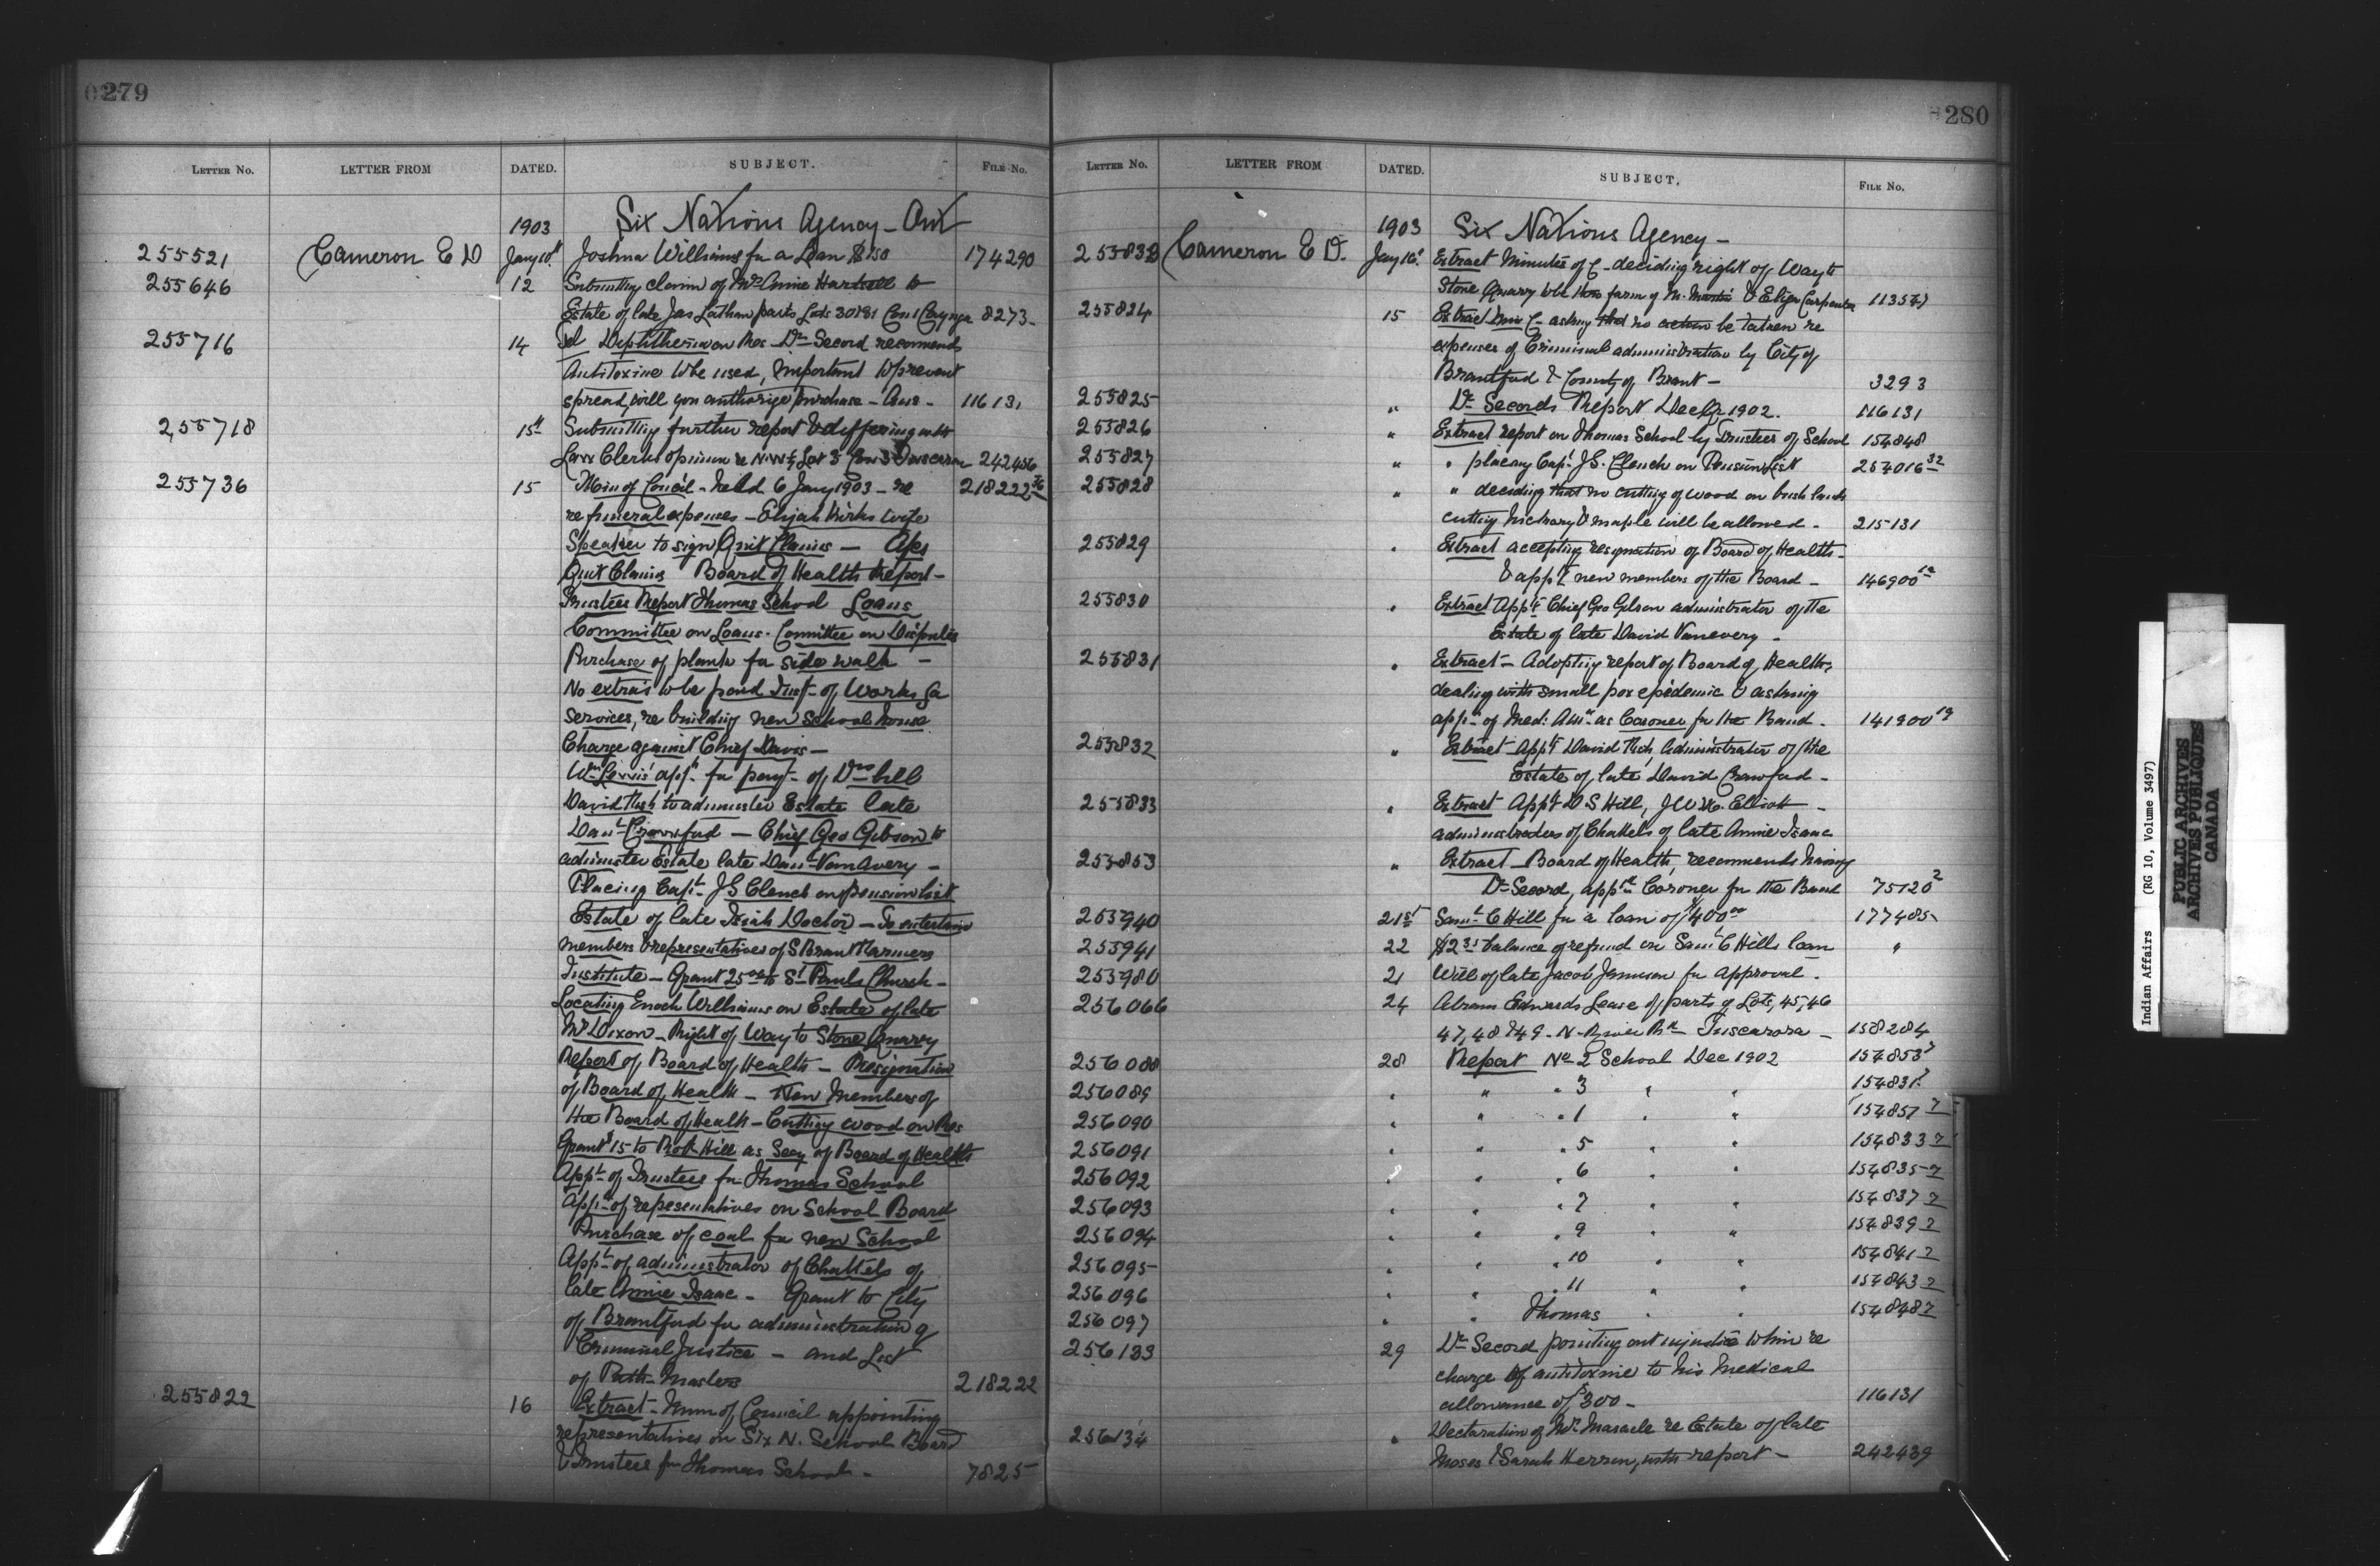 279
Letter No. LETTER FROM DATED. SUBJECT. File No.
1903 Six Nations Agency - Ont
255521 Cameron E D Jany 10th Joshua Williams for a Loan $150 174290
255646 12 Submitting claim of Mrs Annie Hartsell to
Estate of late Jas Latham parts Lots 30 & 31 Con 1 Cayuga 8273
255716 14 Tel Diphtheria on Res - Dr Secord recommends
Antitoxine to be used, important to prevent
spread, will you authorize purchase - Ans - 116131
255718 15th Submitting further report & differing with
Law Clerks opinion re N.W ¼ Lot 3 Con 3 Tuscarora 242456
255736 15 Min of Council - held 6 Jany 1903 - re 218222 36
re funeral expenses - Elijah Kirks wife
Speaker to sign Quit Claims - Apes
Quit Claims Board of Health Report -
Trustees Report Thomas School Loans
Committee on Loans - Committee on Disputes
Purchase of plank for side walk -
No extras to be paid Inst - of Works for
Services, re building new School house
Charge against Chief Davis -
Wm Lewis' appn for payt - of Drs bill
David to administer Estate late
Danl Crawford - Chief Geo Gibson to
administer Estate late Danl VanAvery -
Placing Capt J S Clench on pension list
Estate of late Isiah Doctor - To entertain
members & representatives of S Brant Farmers
Institute - Grant 25 00 to St Pauls Church -
Locating Enoch Williams on Estate of late
Mr Dixon - Right of Way to Stone Quarry
Report of Board of Health - Resignation
of Board of Health - New Members of
the Board of Health - Cutting wood on Res
Grant $15 to Hill as Secy of Board of Health
Appt of Trustees for Thomas School
Appt of representatives on School Board
Purchase of coal for new School
Appt of administrator of Chattels of
late Annie Isaac - Grant to City
of Brantford for administration of
Criminal Justice - and List
of Path Masters 218222
255822 16 Extract - Mins of Council appointing
representatives on Six N. School Board
& Trustees for Thomas School - 7825
280
Letter No. LETTER FROM DATED. SUBJECT. File No.
1903 Six Nations Agency -
Cameron E D. Jany 16 Extract Minutes of C - deciding right of Way to
Stone Quarry to be thro farm of M. Martin & Eliza Carpenter 113547
255824 15 Extract Min C - asking that no action be taken re
expenses of Criminal administration by City of
Brantford & County of Brant - 3293
255825 " Dr Secords Report Dec Qr 1902. 116131
255826 " Extract report on Thomas School by Trustees of School 154848
255827 " " placing Capt J.S. Clench on Pension List 254016 32
255828 " " deciding that no cutting of wood on bush lands
cutting hickory & maple will be allowed - 215131
255829 " Extract accepting resignation of Board of Health -
& appt new members of the Board - 146900
255830 " Extract Appt Chief Geo Gibson administrator of the
Estate of late David Vanevery -
255831 " Extract - Adopting report of Board of Health,
dealing with small pox epidemic & asking
appt of Med: Attn as Coroner for the Band - 141900 19
255832 " Extract - Appt David administrator of the
Estate of late David Crawford -
255833 " Extract Appt D S Hill, J W M. Elliott -
administrators of Chattels of late Annie Isaac
255853 " Extract - Board of Health, recommends having
Dr Secord, apptd Coroner for the Band 75120 2
255940 21st Saml C Hill for a loan of $400 00 177485
255941 22 $2 35 balance of refund on Saml C Hills loan "
255980 21 Will of late Jacob Jamieson for approval.
256066 24 Abram Edwards Lease of parts of Lots, 45, 46
47, 48 & 49 - N. River Rd Tuscarora - 158284
256088 28 Report No 2 School Dec 1902 154853 7
256089 " " " 3 " " 154831 7
256090 " " " 1 " " 154857 7
256091 " " " 5 " " 154833 7
256092 " " " 6 " " 154835 7
256093 " " " 7 " " 154837 7
256094 " " " 9 " " 154839 7
256095 " " " 10 " " 154841 7
256096 " " " 11 " " 154843 7
256097 " " Thomas " " 154848 7
256133 29 Dr Secord pointing out injustice to him re
charge of antitoxine to his Medical
allowance of $300 - 116131
256134 " Declaration of Mrs Maracle re Estate of late
Moses & Sarah Herron, with report - 242439
Indian Affairs (RG 10, Volume 3497)
PUBLIC ARCHIVES
ARCHIVES PUBLIQUES
CANADA